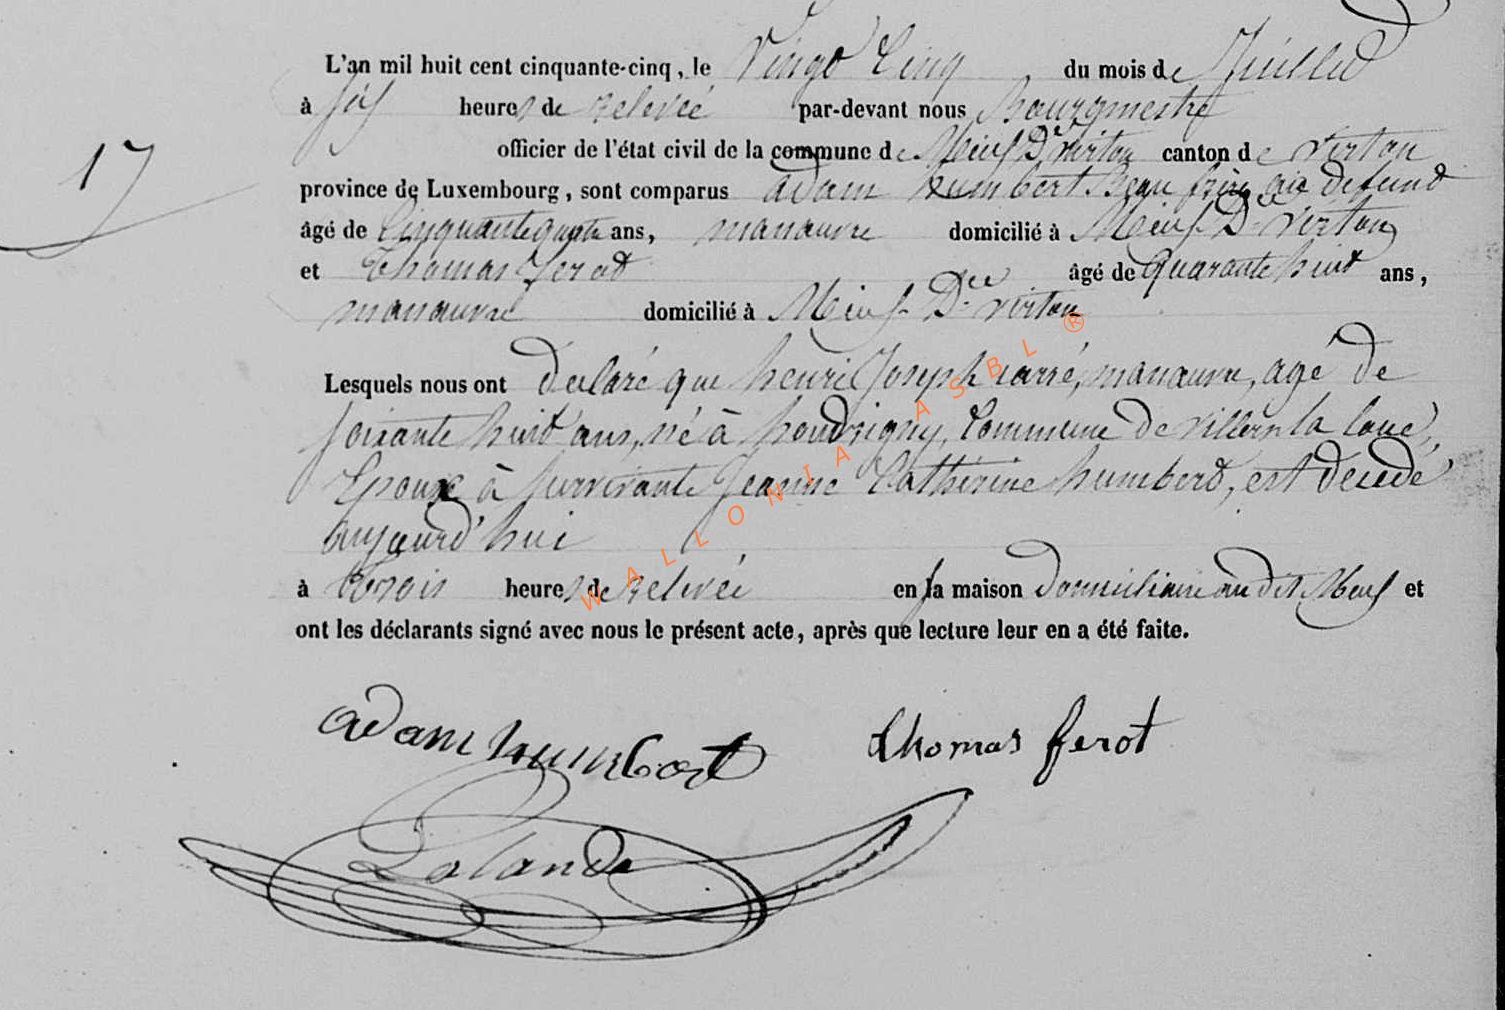 L'an mil huit cent cinquante-cinq, le Vingt Cinq du mois de Juillet
à six heures de relevée par-devant nous Bourgmestre
officier de l'état civil de la commune de Meix Dt virton canton de virton
17
province de Luxembourg, sont comparus adam humbert Beau frère au defunt
âgé de Cinquante quatre ans, manœuvre domicilié à Meix Dt virton
et thomas ferot âgé de quarante huit ans,
manœuvre domicilié à Meix Dt virton
Lesquels nous ont declaré que henri Joseph carré, manœuvre, agé de
soixante huit ans, né à houdrigny, Commune de villers la loue,
Epoux à survivante Jeanne Catherine humbert, est decedé
aujourd'hui
à trois heures de relevée en sa maison domiciliaire au dit Meix et
ont les déclarants signé avec nous le présent acte, après que lecture leur en a été faite.
WALLONIA ASBL ®
adam humbert thomas ferot
Lalande